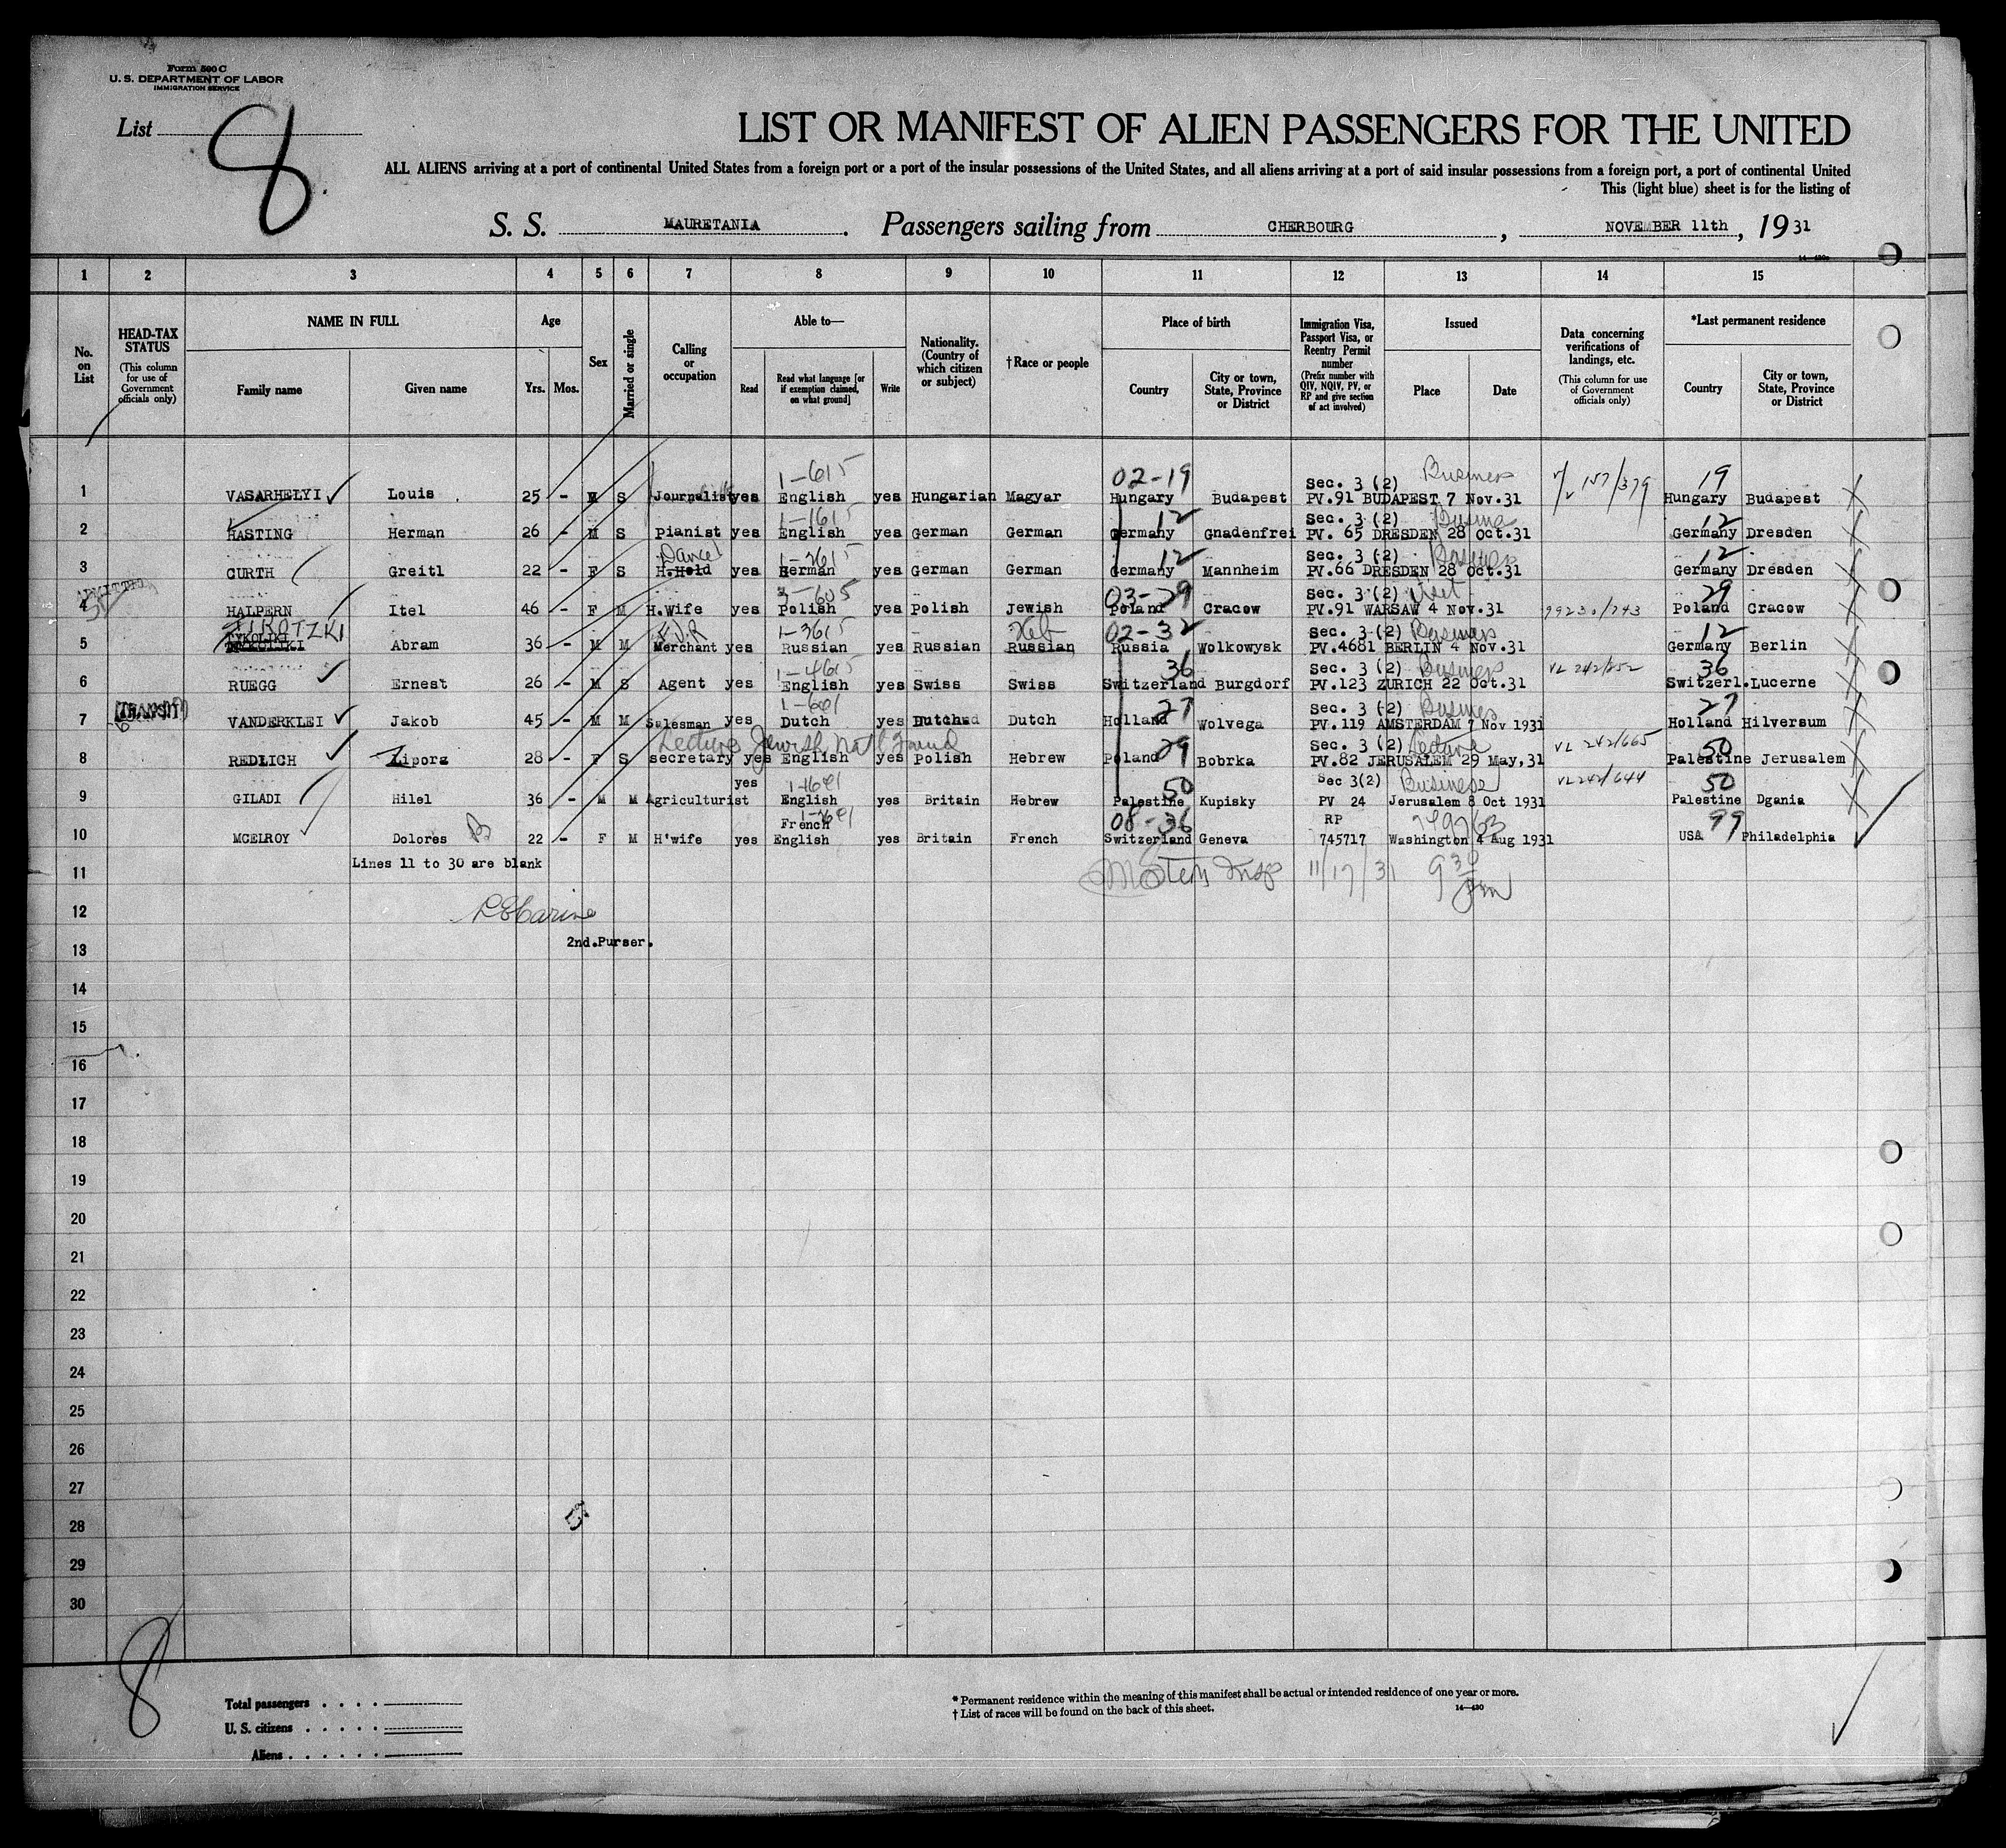 Form 500 C
U. S. DEPARTMENT OF LABOR
IMMIGRATION SERVICE
List 8
LIST OR MANIFEST OF ALIEN PASSENGERS FOR THE UNITED
ALL ALIENS arriving at a port of continental United States from a foreign port or a port of the insular possessions of the United States, and all aliens arriving at a port of said insular possessions from a foreign port, a port of continental United
This (light blue) sheet is for the listing of
S. S. MAURETANIA. Passengers sailing from CHERBOURG, NOVEMBER 11th, 1931
1 2 3 4 5 6 7 8 9 10 11 12 13 14 15
No. on List
HEAD-TAX STATUS
(This column for use of Government officials only)
NAME IN FULL
Family name Given name
Age
Yrs. Mos.
Sex
Married or single
Calling or occupation
Able to—
Read
Read what language [or if exemption claimed, on what ground]
Write
Nationality. (Country of which citizen or subject)
†Race or people
Place of birth
Country
City or town, State, Province or District
Immigration Visa, Passport Visa, or Reentry Permit number
(Prefix number with QIV, NQIV, PV, or RP and give section of act involved)
Issued
Place Date
Data concerning verifications of landings, etc.
(This column for use of Government officials only)
*Last permanent residence
Country
City or town, State, Province or District
1-615 02-19 Sec. 3 (2) Business 157/379 19
1 VASARHELYI Louis 25 - M S Journalist yes English yes Hungarian Magyar Hungary Budapest PV.91 BUDAPEST 7 Nov.31 Hungary Budapest
1-1615 12 Sec. 3 (2) 12
2 HASTING Herman 26 - M S Pianist yes English yes German German Germany Gnadenfrei PV. 65 DRESDEN 28 Oct.31 Germany Dresden
1-3615 12 Sec. 3 (2) Business 12
3 CURTH Greitl 22 - F S H.Hold yes German yes German German Germany Mannheim PV.66 DRESDEN 28 Oct.31 Germany Dresden
ADMITTED 3-605 03-29 Sec. 3 (2) Visit 29
4 HALPERN Itel 46 - F M H.Wife yes Polish yes Polish Jewish Poland Cracow PV.91 WARSAW 4 Nov.31 99230/743 Poland Cracow
TYKOTZKI F.J.R 1-3615 Heb 02-32 Sec. 3 (2) Business 12
5 TYKOLIKI Abram 36 - M M Merchant yes Russian yes Russian Russian Russia Wolkowysk PV.4681 BERLIN 4 Nov.31 Germany Berlin
1-4615 36 Sec. 3 (2) Business VL 242/652 36
6 RUEGG Ernest 26 - M S Agent yes English yes Swiss Swiss Switzerland Burgdorf PV.123 ZURICH 22 Oct.31 Switzerl. Lucerne
(TRANSIT) 1-601 27 Sec. 3 (2) Business 27
7 VANDERKLEI Jakob 45 - M M Salesman yes Dutch yes Dutch Dutch Holland Wolvega PV.119 AMSTERDAM 7 Nov 1931 Holland Hilversum
Lecture Jewish Nat'l Fund 29 Sec. 3 (2) Lecture VL 242/665 50
8 REDLICH Zipora 28 - F S secretary yes English yes Polish Hebrew Poland Bobrka PV.82 JERUSALEM 29 May,31 Palestine Jerusalem
yes 50 Sec 3(2) Business VL 242/644 50
9 GILADI Hilel 36 - M M Agriculturist English yes Britain Hebrew Palestine Kupisky PV 24 Jerusalem 8 Oct 1931 Palestine Dgania
French 08-36 RP 99
10 MCELROY Dolores 22 - F M H'wife yes English yes Britain French Switzerland Geneva 745717 Washington 4 Aug 1931 USA Philadelphia
Lines 11 to 30 are blank
11 Insp 11/17/31 9 30 pm
12
2nd.Purser.
13
14
15
16
17
18
19
20
21
22
23
24
25
26
27
28
29
30
8
Total passengers . . . .
U. S. citizens . . . . .
Aliens . . . . . .
* Permanent residence within the meaning of this manifest shall be actual or intended residence of one year or more.
† List of races will be found on the back of this sheet.
14—430